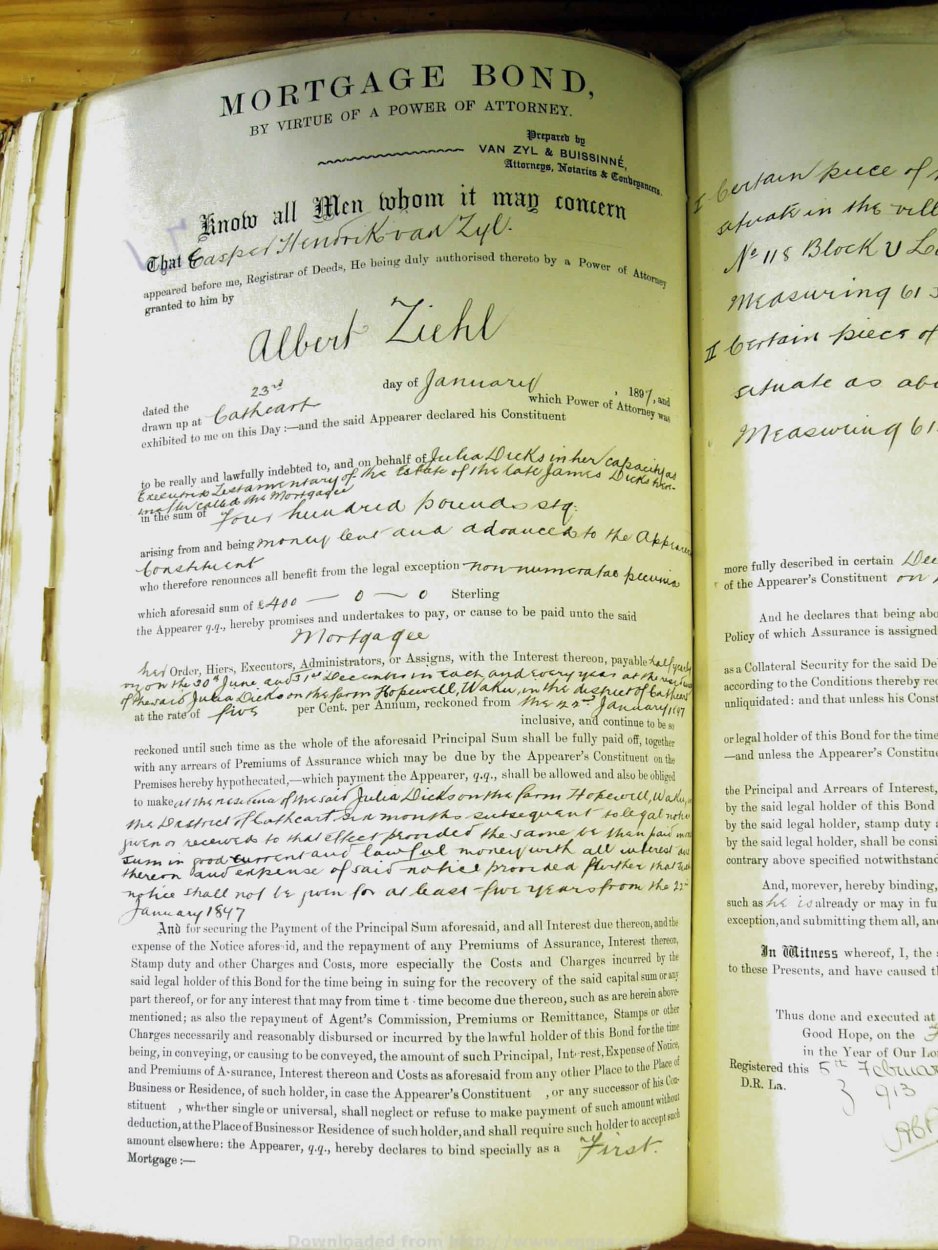 MORTGAGE BOND,
BY VIRTUE OF A POWER OF ATTORNEY.
Prepared by
VAN ZYL & BUISSINNÉ,
Attorneys, Notaries & Conveyancers.
Know all Men whom it may concern
That Casper Hendrik van Zyl.
appeared before me, Registrar of Deeds, He being duly authorised thereto by a Power of Attorney
granted to him by
Albert Ziehl
dated the 23rd day of January, 1897, and
drawn up at Cathcart which Power of Attorney was
exhibited to me on this Day:—and the said Appearer declared his Constituent
to be really and lawfully indebted to, and on behalf of Julia Dicks in her capacity as
Executrix Testamentary of the Estate of the late James Dicks herein-
after called the Mortgagee
in the sum of Four hundred pounds stg.
arising from and being money lent and advanced to the Appearer's
Constituent
who therefore renounces all benefit from the legal exception non numeratae pecunia
which aforesaid sum of £400 — 0 — 0 Sterling
the Appearer q.q., hereby promises and undertakes to pay, or cause to be paid unto the said
Mortgagee
her Order, Hiers, Executors, Administrators, or Assigns, with the Interest thereon, payable half yearly
on the 30th June and 31st December in each and every year at the residence
of the said Julia Dicks on the farm Hopewell, Waku, in the district of Cathcart
at the rate of five per Cent. per Annum, reckoned from the 22nd January 1897
inclusive, and continue to be so
reckoned until such time as the whole of the aforesaid Principal Sum shall be fully paid off, together
with any arrears of Premiums of Assurance which may be due by the Appearer's Constituent on the
Premises hereby hypothecated,—which payment the Appearer, q.q., shall be allowed and also be obliged
to make at the residence of the said Julia Dicks on the farm Hopewell, Waku, in
the District of Cathcart six months subsequent to legal notice
given or received to that effect provided the same be then paid in one
sum in good current and lawful money with all interest due
thereon and expense of said notice provided further that such
notice shall not be given for at least five years from the 22nd
January 1897
And for securing the Payment of the Principal Sum aforesaid, and all Interest due thereon, and the
expense of the Notice aforesaid, and the repayment of any Premiums of Assurance, Interest thereon,
Stamp duty and other Charges and Costs, more especially the Costs and Charges incurred by the
said legal holder of this Bond for the time being in suing for the recovery of the said capital sum or any
part thereof, or for any interest that may from time t · time become due thereon, such as are herein above-
mentioned; as also the repayment of Agent's Commission, Premiums or Remittance, Stamps or other
Charges necessarily and reasonably disbursed or incurred by the lawful holder of this Bond for the time
being, in conveying, or causing to be conveyed, the amount of such Principal, Interest, Expense of Notice,
and Premiums of Assurance, Interest thereon and Costs as aforesaid from any other Place to the Place of
Business or Residence, of such holder, in case the Appearer's Constituent , or any successor of his Con-
stituent , whether single or universal, shall neglect or refuse to make payment of such amount without
deduction, at the Place of Business or Residence of such holder, and shall require such holder to accept such
amount elsewhere: the Appearer, q.q., hereby declares to bind specially as a First.
Mortgage:—
I Certain piece of
situate in the vill
No 118 Block U Lo
Measuring 61
II Certain piece of
situate as abo
Measuring 61
more fully described in certain Dee
of the Appearer's Constituent on
And he declares that being abo
Policy of which Assurance is assigned
as a Collateral Security for the said De
according to the Conditions thereby rec
unliquidated: and that unless his Const
or legal holder of this Bond for the time
—and unless the Appearer's Constitue
the Principal and Arrears of Interest,
by the said legal holder of this Bond
by the said legal holder, stamp duty
by the said legal holder, shall be consi
contrary above specified notwithstand
And, morever, hereby binding,
such as he is already or may in fu
exception, and submitting them all, and
In Witness whereof, I, the
to these Presents, and have caused t
Thus done and executed at
Good Hope, on the
in the Year of Our Lo
Registered this 5th February
D.R. La. 913
Downloaded from